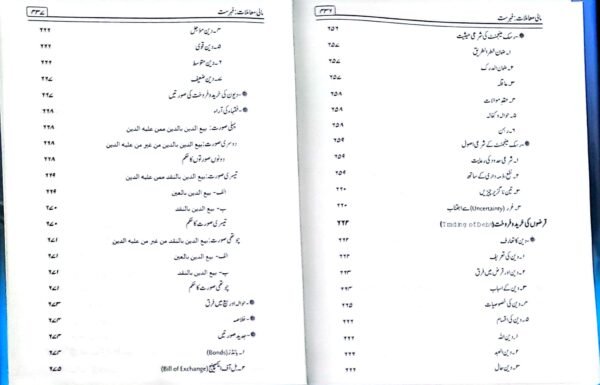 ۴۳۶
مالی معاملات: فہرست
رسک مینجمنٹ کی شرعی حیثیت ۲۵۶
۱۔ ضمان خطر الطریق ۲۵۷
۲۔ ضمان الدرک ۲۵۷
۳۔ عاقلہ ۲۵۷
۴۔ عقد موالات ۲۵۸
۵۔ حوالہ و کفالہ ۲۵۸
۶۔ رہن ۲۵۸
رسک مینجمنٹ کے شرعی اصول ۲۵۹
۱۔ شرعی حدود کی رعایت ۲۵۹
۲۔ نفع ذمہ داری کے ساتھ ۲۵۹
۳۔ تین ناگزیر چیزیں ۲۶۰
۴۔ غرر (Uncertainty) سے اجتناب ۲۶۰
قرضوں کی خرید و فروخت (Trading of Debt) ۲۶۳
دین کا تعارف ۲۶۳
۱۔ دین کی تعریف ۲۶۳
۲۔ دین اور قرض میں فرق ۲۶۴
۳۔ دین کے اسباب
۴۔ دین کی خصوصیات ۲۶۵
۵۔ دین کی اقسام ۲۶۶
۱۔ دین اللہ ۲۶۶
۲۔ دین العبد ۲۶۶
۳۔ دین حال ۲۶۶
مالی معاملات: فہرست
۴۳۷
۴۔ دین مؤجل ۲۶۶
۵۔ دین قوی ۲۶۶
۶۔ دین متوسط ۲۶۶
۷۔ دین ضعیف ۲۶۷
دیون کی خرید و فروخت کی صورتیں ۲۶۷
فقہاء کی آراء ۲۶۸
پہلی صورت: بیع الدین بالدین ممن علیه الدین ۲۶۸
دوسری صورت: بیع الدین بالدین من غیر من علیه الدین ۲۶۸
دونوں صورتوں کا حکم ۲۶۸
تیسری صورت: بیع الدین بالنقد ممن علیه الدین ۲۶۹
الف۔ بیع الدین بالعین ۲۶۹
ب۔ بیع الدین بالنقد ۲۷۰
تیسری صورت کا حکم ۲۷۰
چوتھی صورت: بیع الدین بالنقد من غیر من علیه الدین ۲۷۱
الف۔ بیع الدین بالعین ۲۷۱
ب۔ بیع الدین بالنقد ۲۷۱
چوتھی صورت کا حکم ۲۷۱
حوالہ اور بیع میں فرق ۲۷۳
خلاصہ ۲۷۳
جدید صورتیں ۲۷۴
۱۔ بانڈز (Bonds) ۲۷۴
۲۔ بل آف ایکسچینج (Bill of Exchange) ۲۷۵